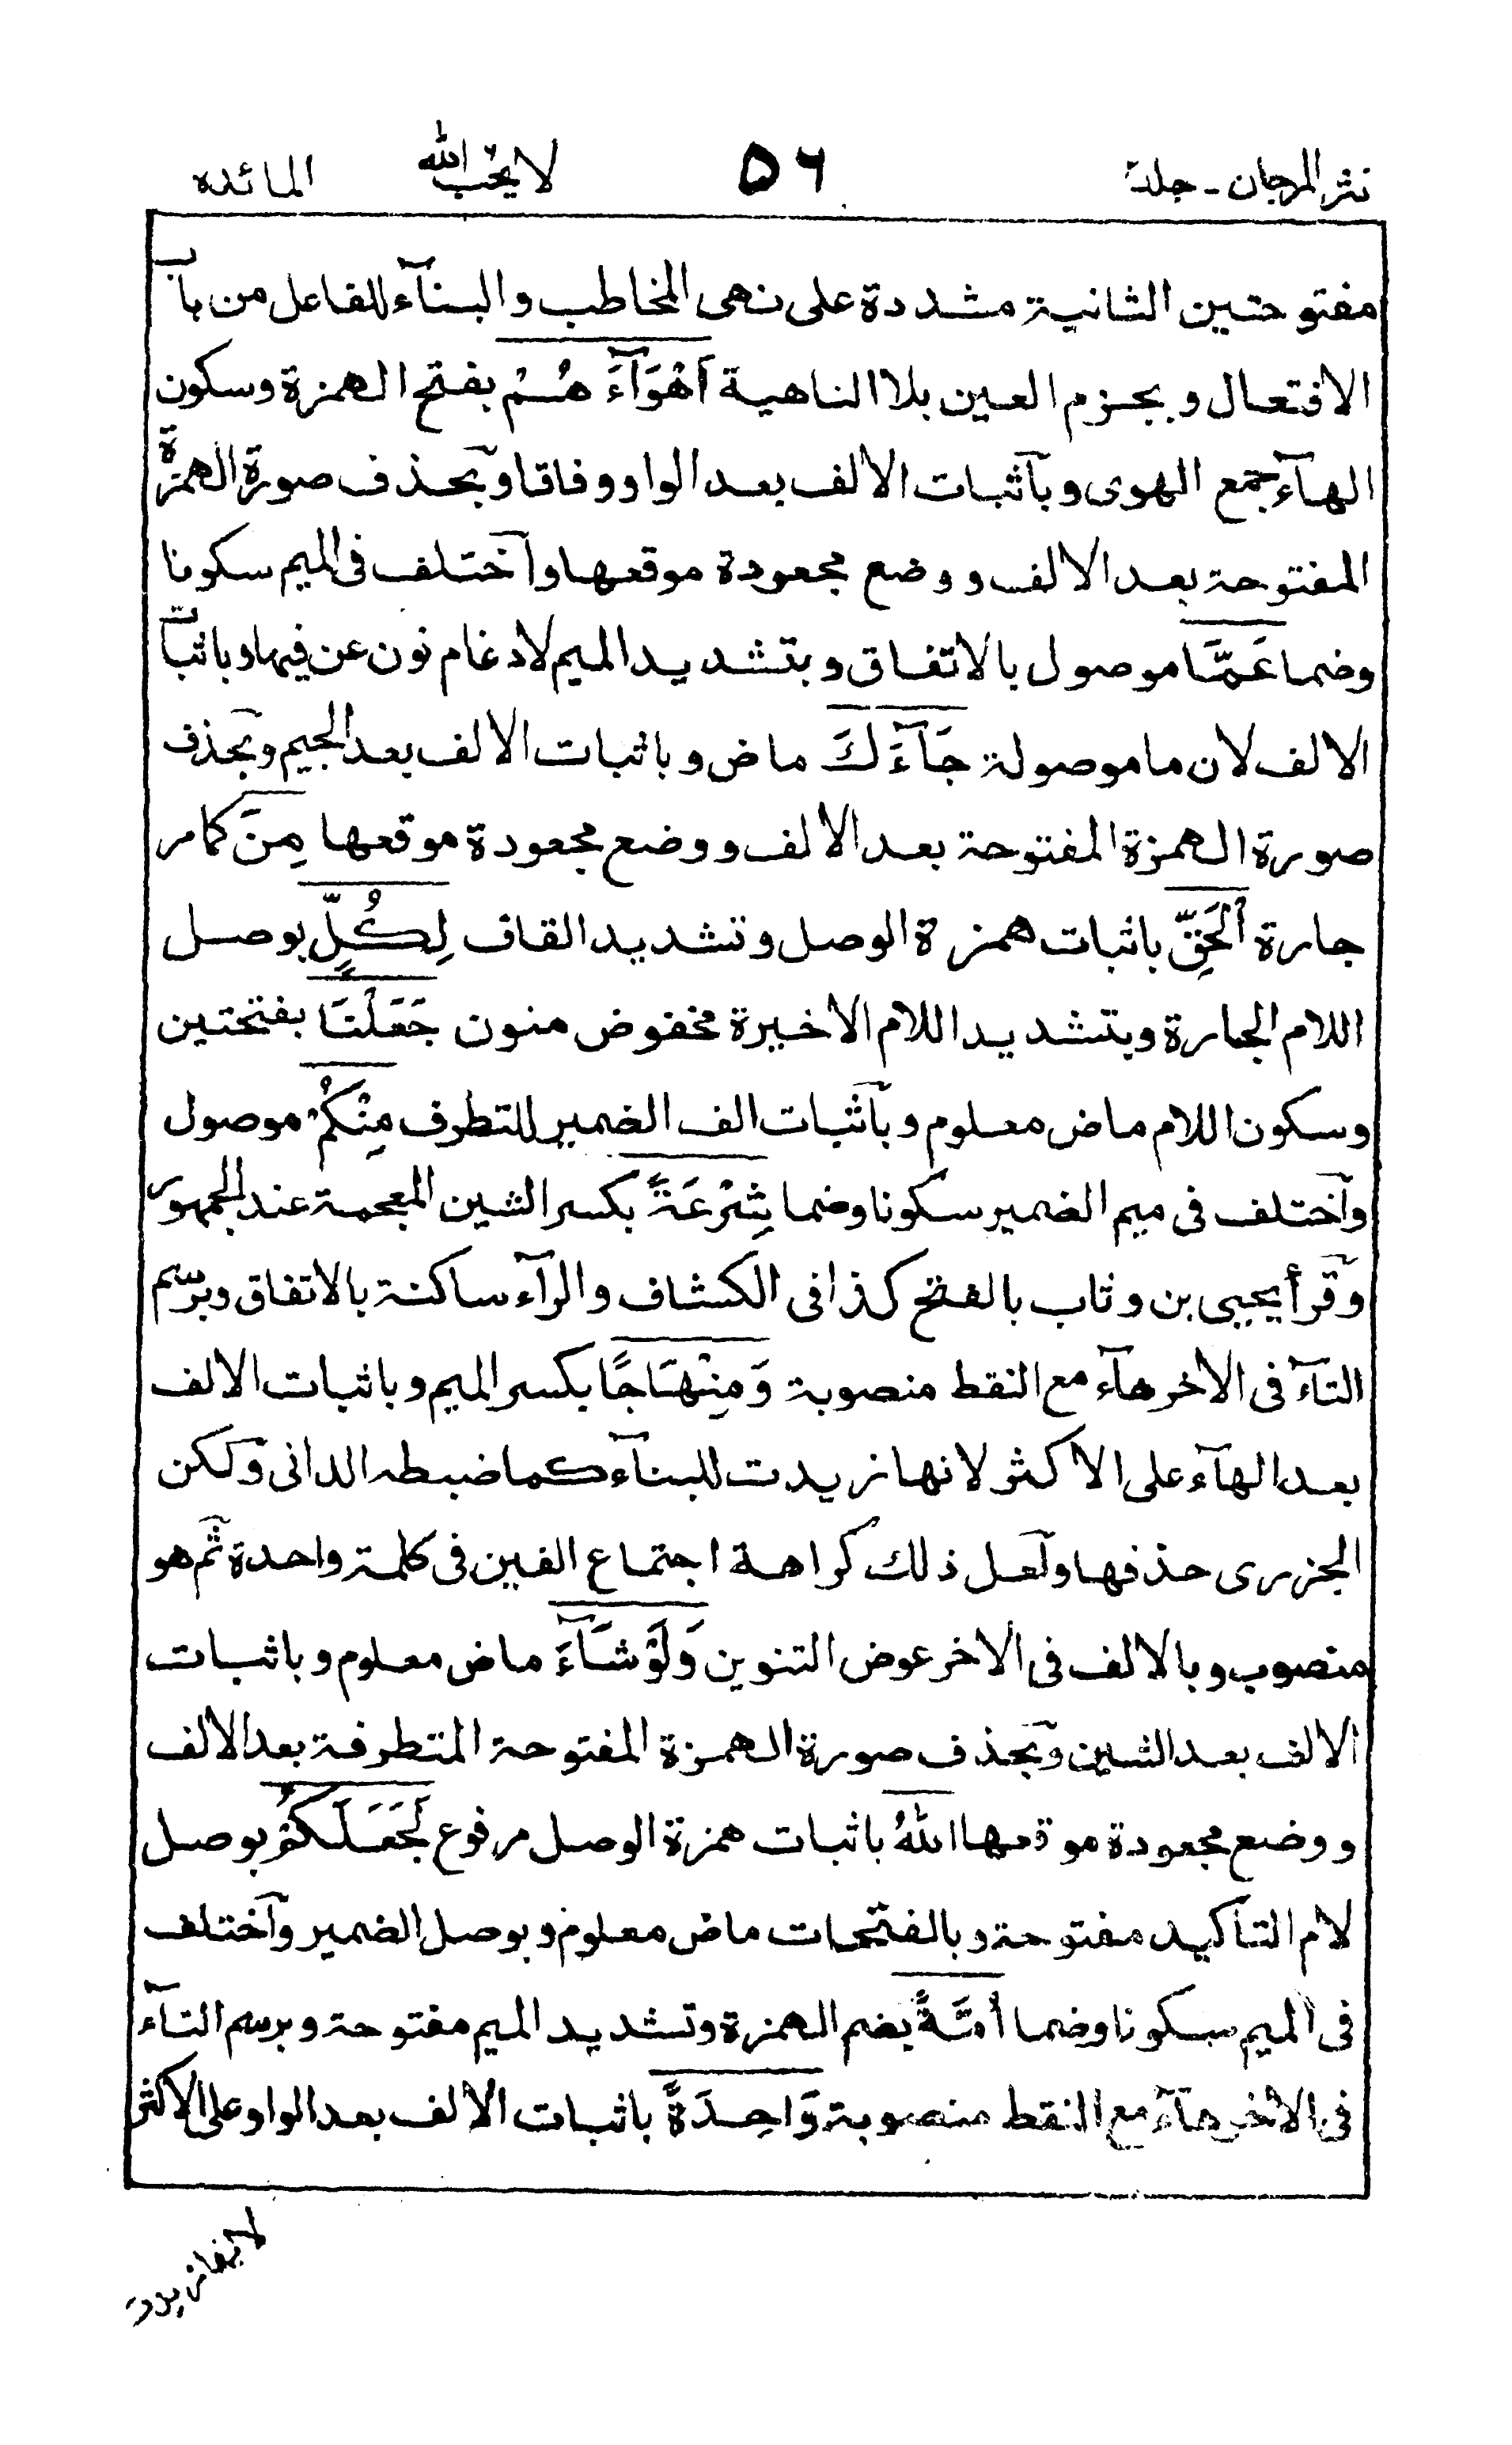 نثر المرجان - جلد ٢
٥٦
لا يحب الله
المائده
مفتوحتين الثانية مشددة على نهى المخاطب والبنآء للفاعل من باب
الافتعال وبجزم العين بلا الناهية أَهْوَآءَ هُمْ بفتح الهمزة وسكون
الهآء جمع الهوى وبآثبات الالف بعد الواو وفاقا وبحذف صورة الهمزة
المفتوحة بعد الالف ووضع مجعودة موقعها وآختلف فى الميم سكونا
وضما عَمَّا موصول بالاتفاق وبتشديد الميم لادغام نون عن فيها وباثبات
الالف لان ما موصولة جَآءَكَ ماض وباثبات الالف بعد الجيم وبحذف
صورة الهمزة المفتوحة بعد الالف ووضع مجعودة موقعها مِنَ كما مر
جارة اَلْحَقِّ باثبات همزة الوصل وتشديد القاف لِكُلٍّ بوصل
اللام الجارة وبتشديد اللام الاخيرة مخفوض منون جَعَلْنَا بفتحتين
وسكون اللام ماض معلوم وبآثبات الف الضمير للتطرف مِنْكُمْ موصول
وآختلف فى ميم الضمير سكونا وضما شِرْعَةً بكسر الشين المعجمة عند الجمهور
وقرأ يحيى بن وثاب بالفتح كذا فى الكشاف والرآء ساكنة بالاتفاق وبرسم
التآء فى الاخر هآء مع النقط منصوبة وَمِنْهَاجًا بكسر الميم وباثبات الالف
بعد الهآء على الاكثر لانها زيدت للبنآء كما ضبطه الدانى ولكن
الجزرى حذفها ولعل ذلك كراهة اجتماع الفين فى كلمة واحدة ثم هو
منصوب وبالالف فى الاخر عوض التنوين وَلَوْ شَآءَ ماض معلوم وباثبات
الالف بعد الشين وبحذف صورة الهمزة المفتوحة المتطرفة بعد الالف
ووضع مجعودة موقعها اللهُ باثبات همزة الوصل مرفوع لَجَعَلَكُمْ بوصل
لام التأكيد مفتوحة وبالفتحات ماض معلوم وبوصل الضمير وآختلف
فى الميم سكونا وضما أُمَّةً بضم الهمزة وتشديد الميم مفتوحة وبرسم التآء
فى الاخر هآء مع النقط منصوبة وَاحِدَةً باثبات الالف بعد الواو على الاكثر
لانها زيدت